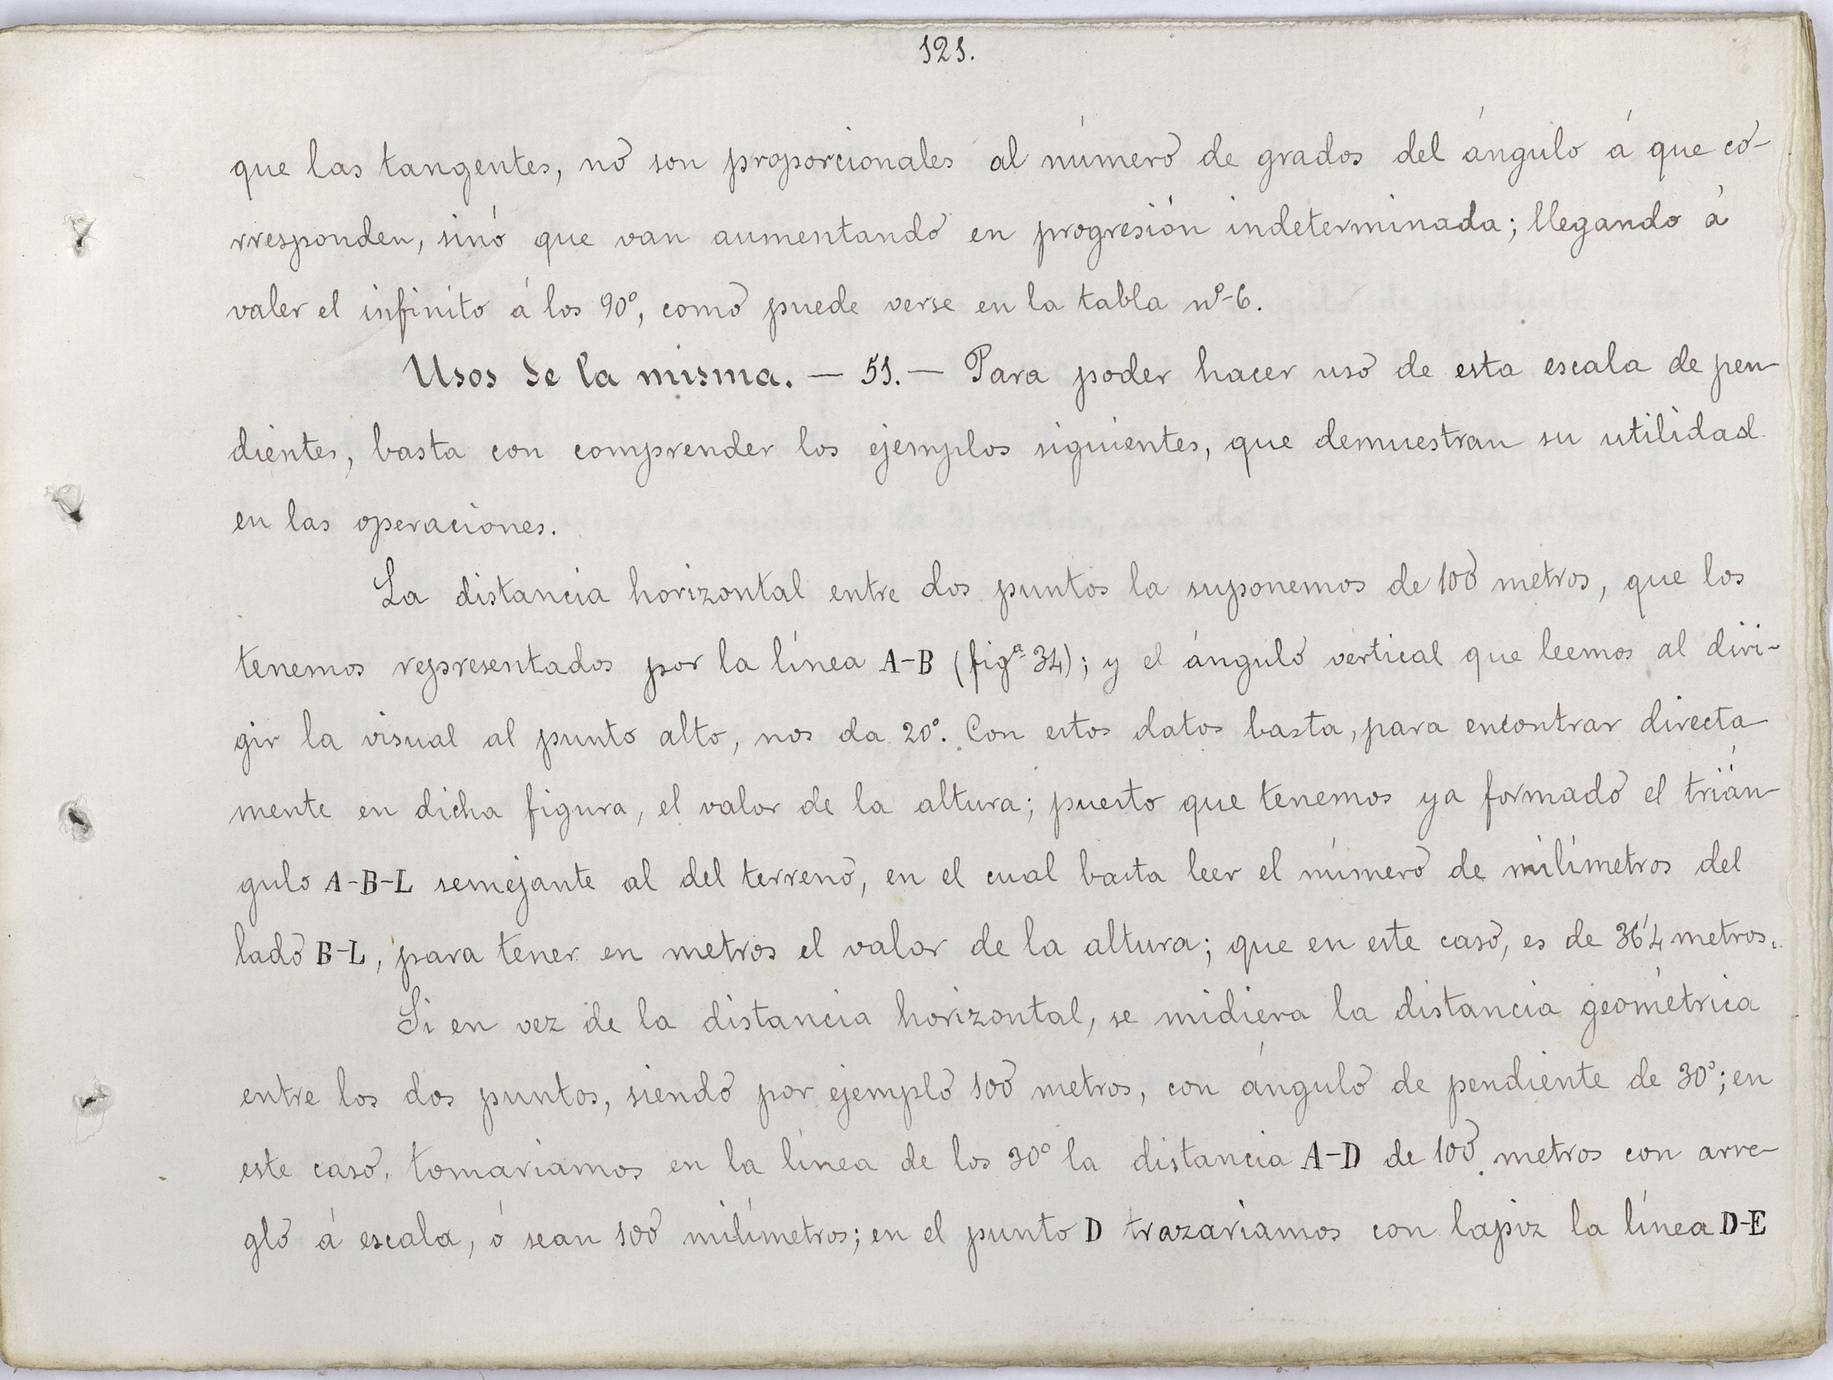 121.
que las tangentes, no son proporcionales al número de grados del ángulo á que co-
rresponden, sinó que van aumentando en progresión indeterminada; llegando á
valer el infinito á los 90°, como puede verse en la tabla nº-6.
Usos de la misma. — 51. — Para poder hacer uso de esta escala de pen-
dientes, basta con comprender los ejemplos siguientes, que demuestran su utilidad
en las operaciones.
La distancia horizontal entre dos puntos la suponemos de 100 metros, que los
tenemos representados por la línea A-B (figª 34); y el ángulo vertical que leemos al diri-
gir la visual al punto alto, nos da 20°. Con estos datos basta, para encontrar directa-
mente en dicha figura, el valor de la altura; puesto que tenemos ya formado el trián-
gulo A-B-L semejante al del terreno, en el cual basta leer el número de milímetros del
lado B-L, para tener en metros el valor de la altura; que en este caso, es de 36'4 metros.
Si en vez de la distancia horizontal, se midiera la distancia geométrica
entre los dos puntos, siendo por ejemplo 100 metros, con ángulo de pendiente de 30°; en
este caso, tomariamos en la línea de los 30° la distancia A-D de 100 metros con arre-
glo á escala, ó sean 100 milímetros; en el punto D trazariamos con lapiz la línea D-E